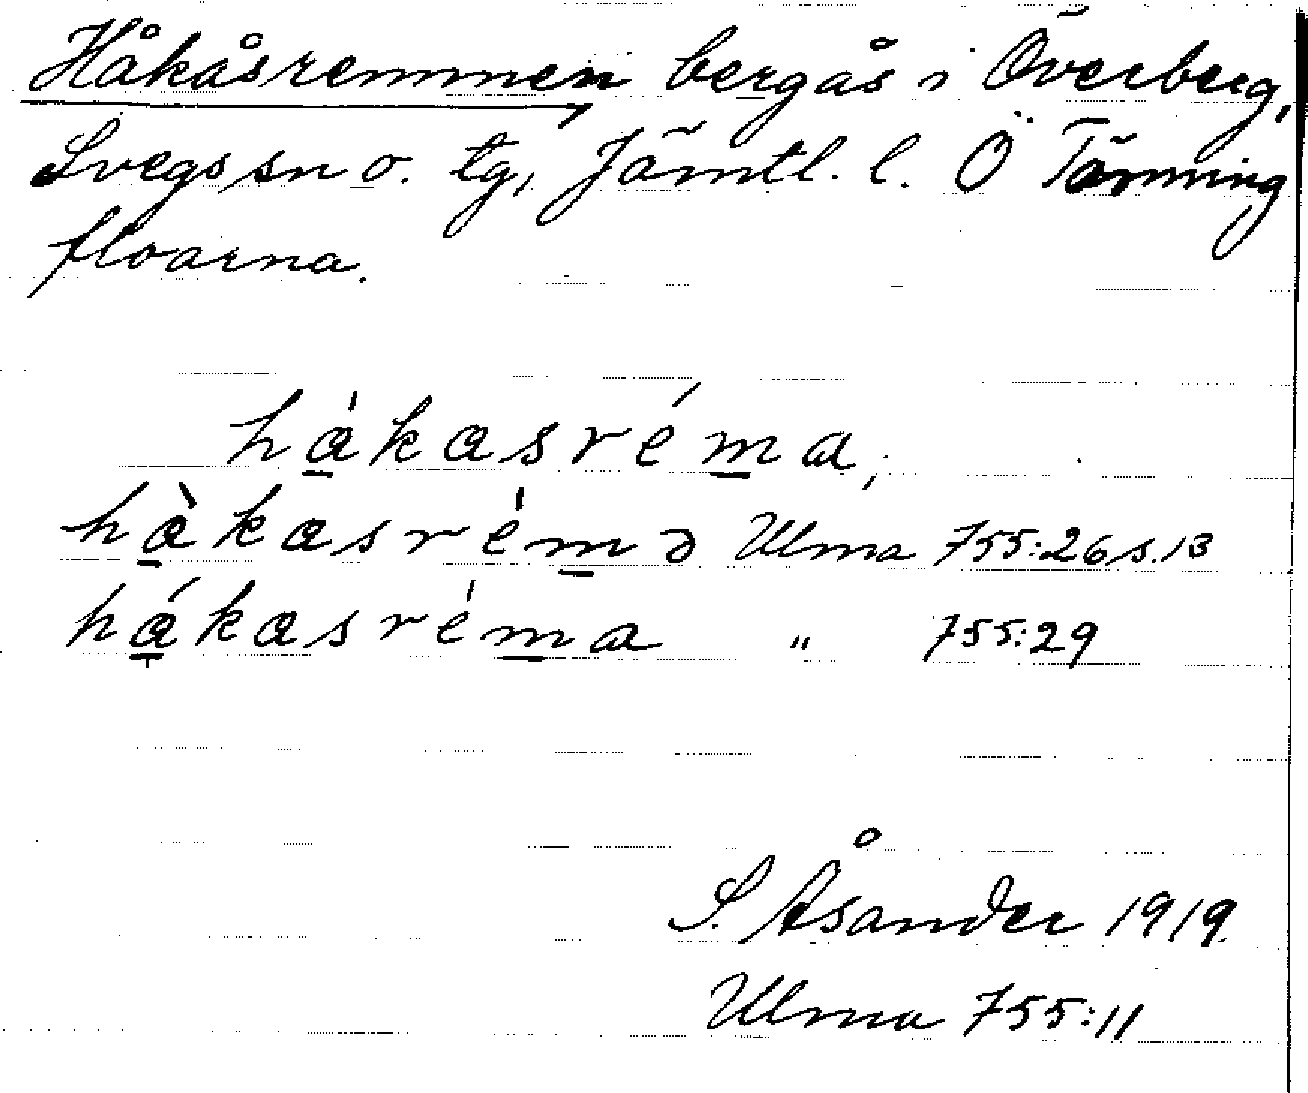 Håkåsremmen bergås i Överberg,
Svegs sn o. tg, Jämtl. l. Ö Tänning
floarna.
håkasréma,
hàkasrémə Ulma 755:26 s. 13
hákasréma " 755:29
S. Åsander 1919
Ulma 755:11